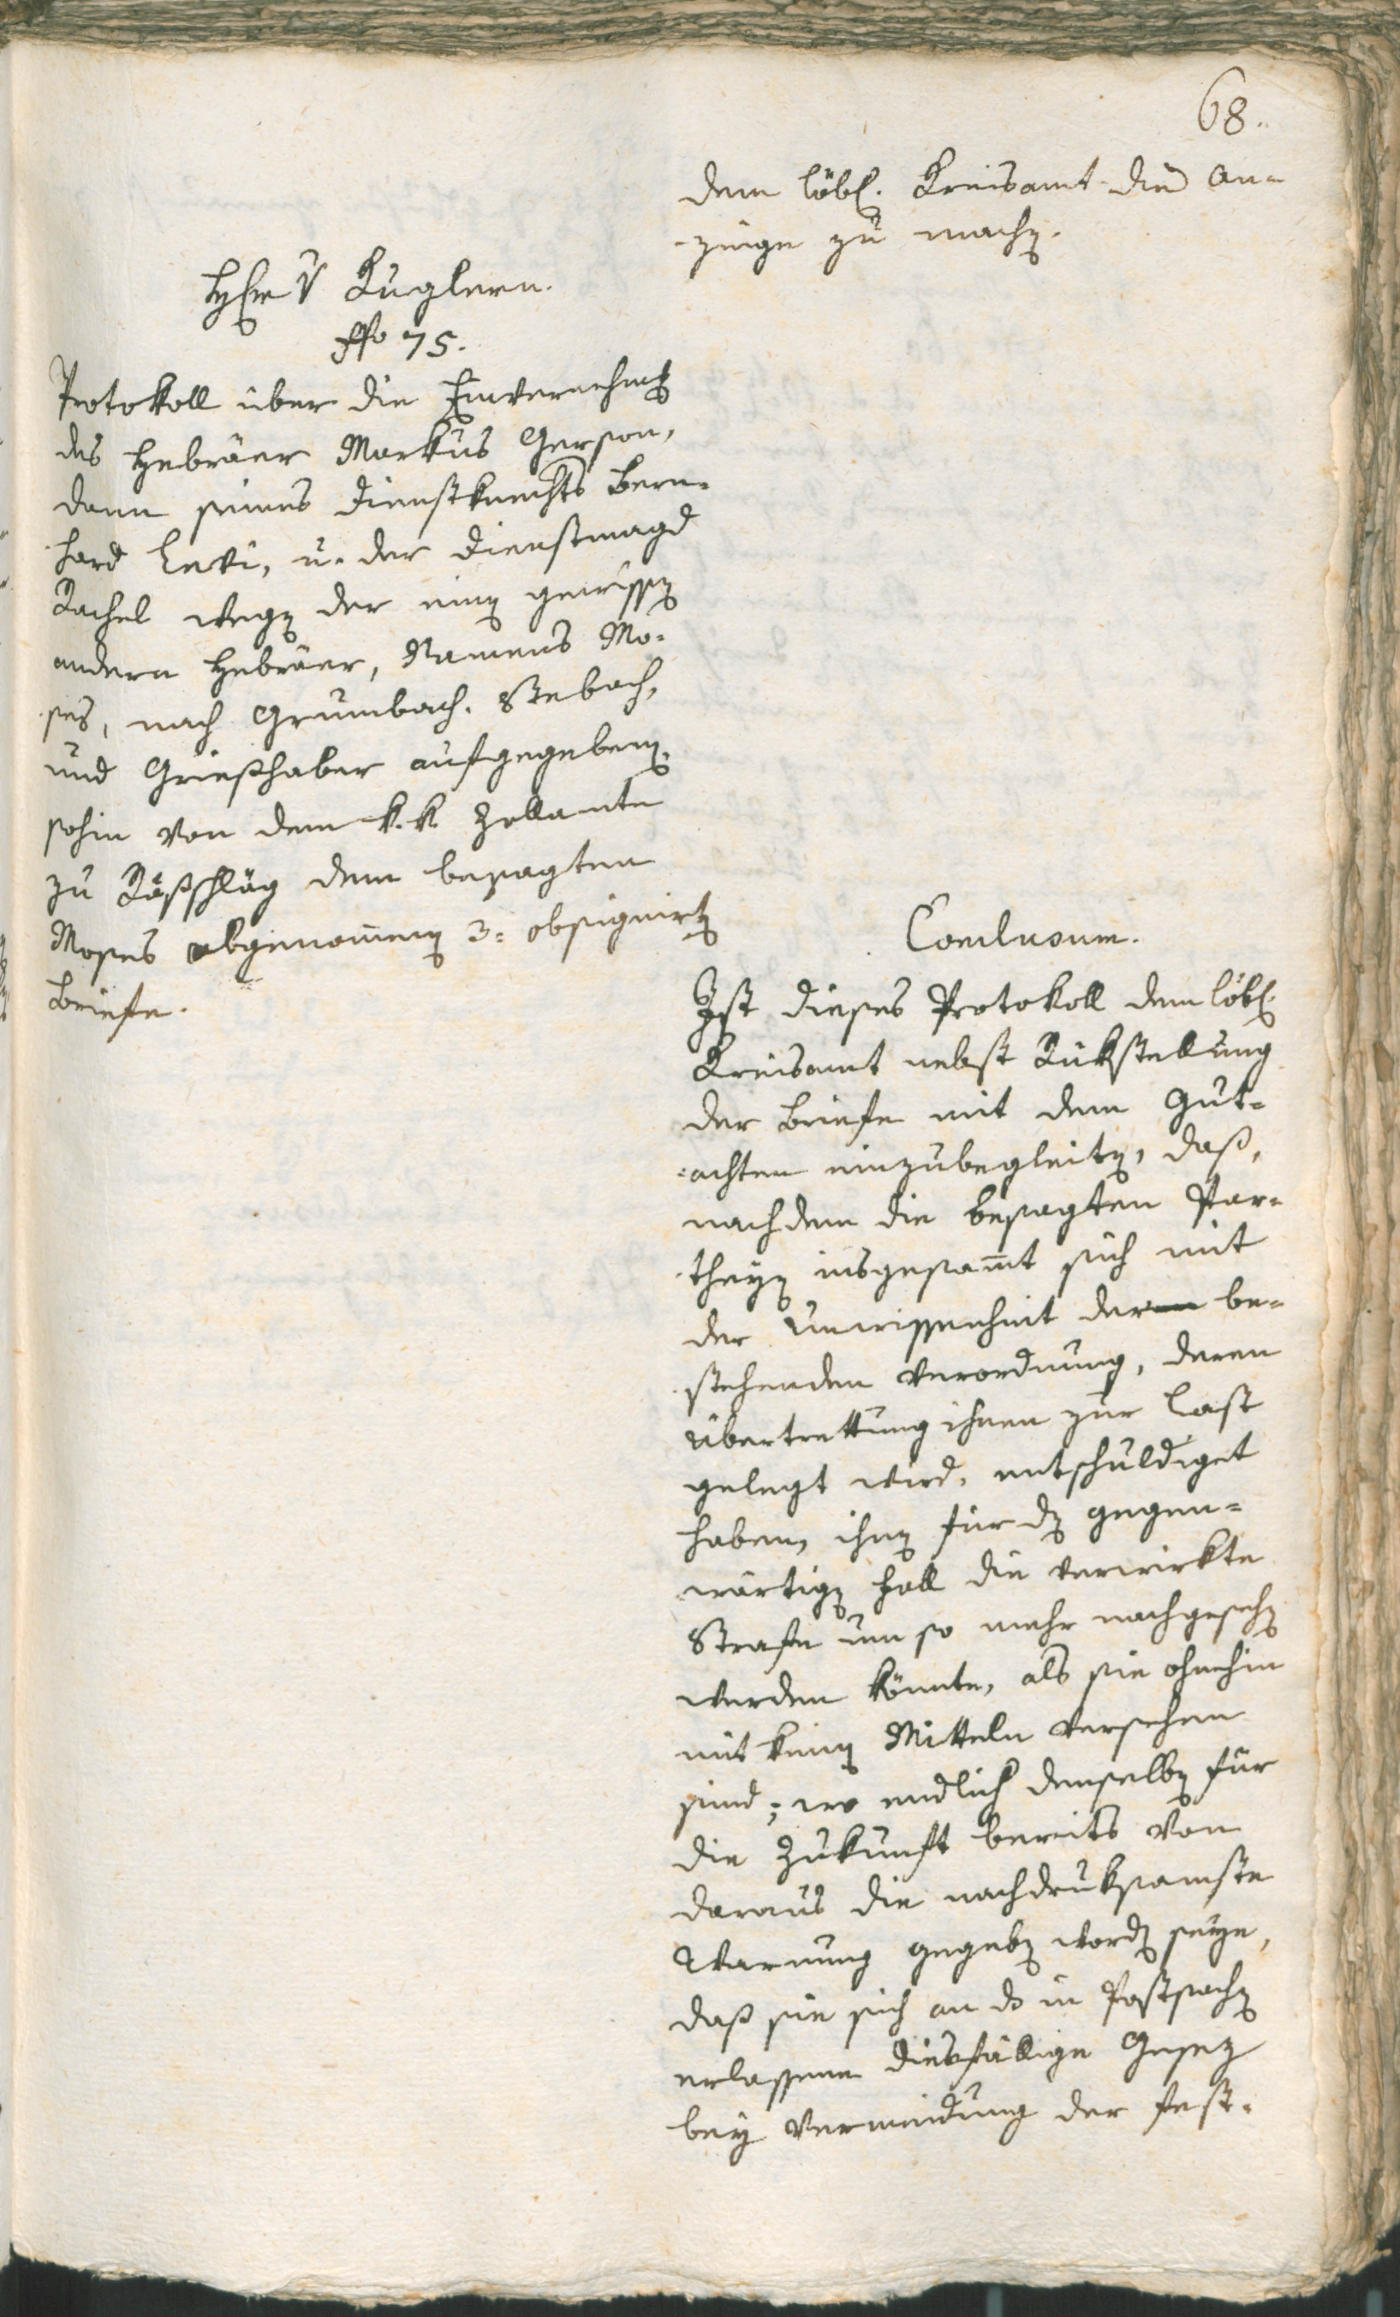 68.
dem löbl. Kreisamt die An-
zeige zu machen.
Kuglern.
75.
Protokoll über die Einvernehmung
des Hebräer Markus Gerson,
dann seines Dienstknechts Bern-
hard Levi, u. der Dienstmagd
Rachel wegen der einen gewissen
andern Hebräer, Namens Mo-
ses, nach Grumbach, Stebach,
und Grießhaber aufgegebenen,
sohin von dem k.k. Zollamte
zu Raßschläg dem besagten
Moses abgenommenen 3: obsignirten
Briefe.
Conclusum.
Ist dieses Protokoll dem löbl.
Kreisamt nebst Rükstellung
der Briefe mit dem Gut-
achten einzubegleiten, daß,
nachdem die besagten Par-
theyen insgesammt sich mit
der Unwissenheit der be-
stehenden Verordnung, deren
Übertrettung ihnen zur Last
gelegt wird, entschuldiget
haben, ihnen für den gegen-
wärtigen Fall die verwirkte
Strafe um so mehr nachgesehen
werden könnte, als sie ohnehin
mit keinen Mitteln versehen
sind; wo endlich denselben für
die Zukunft bereits von
daraus die nachdruksamste
Warnung gegeben worden seye,
daß sie sich an das in Postsachen
erlassene diesfällige Gesez
bey Vermeidung der fest-